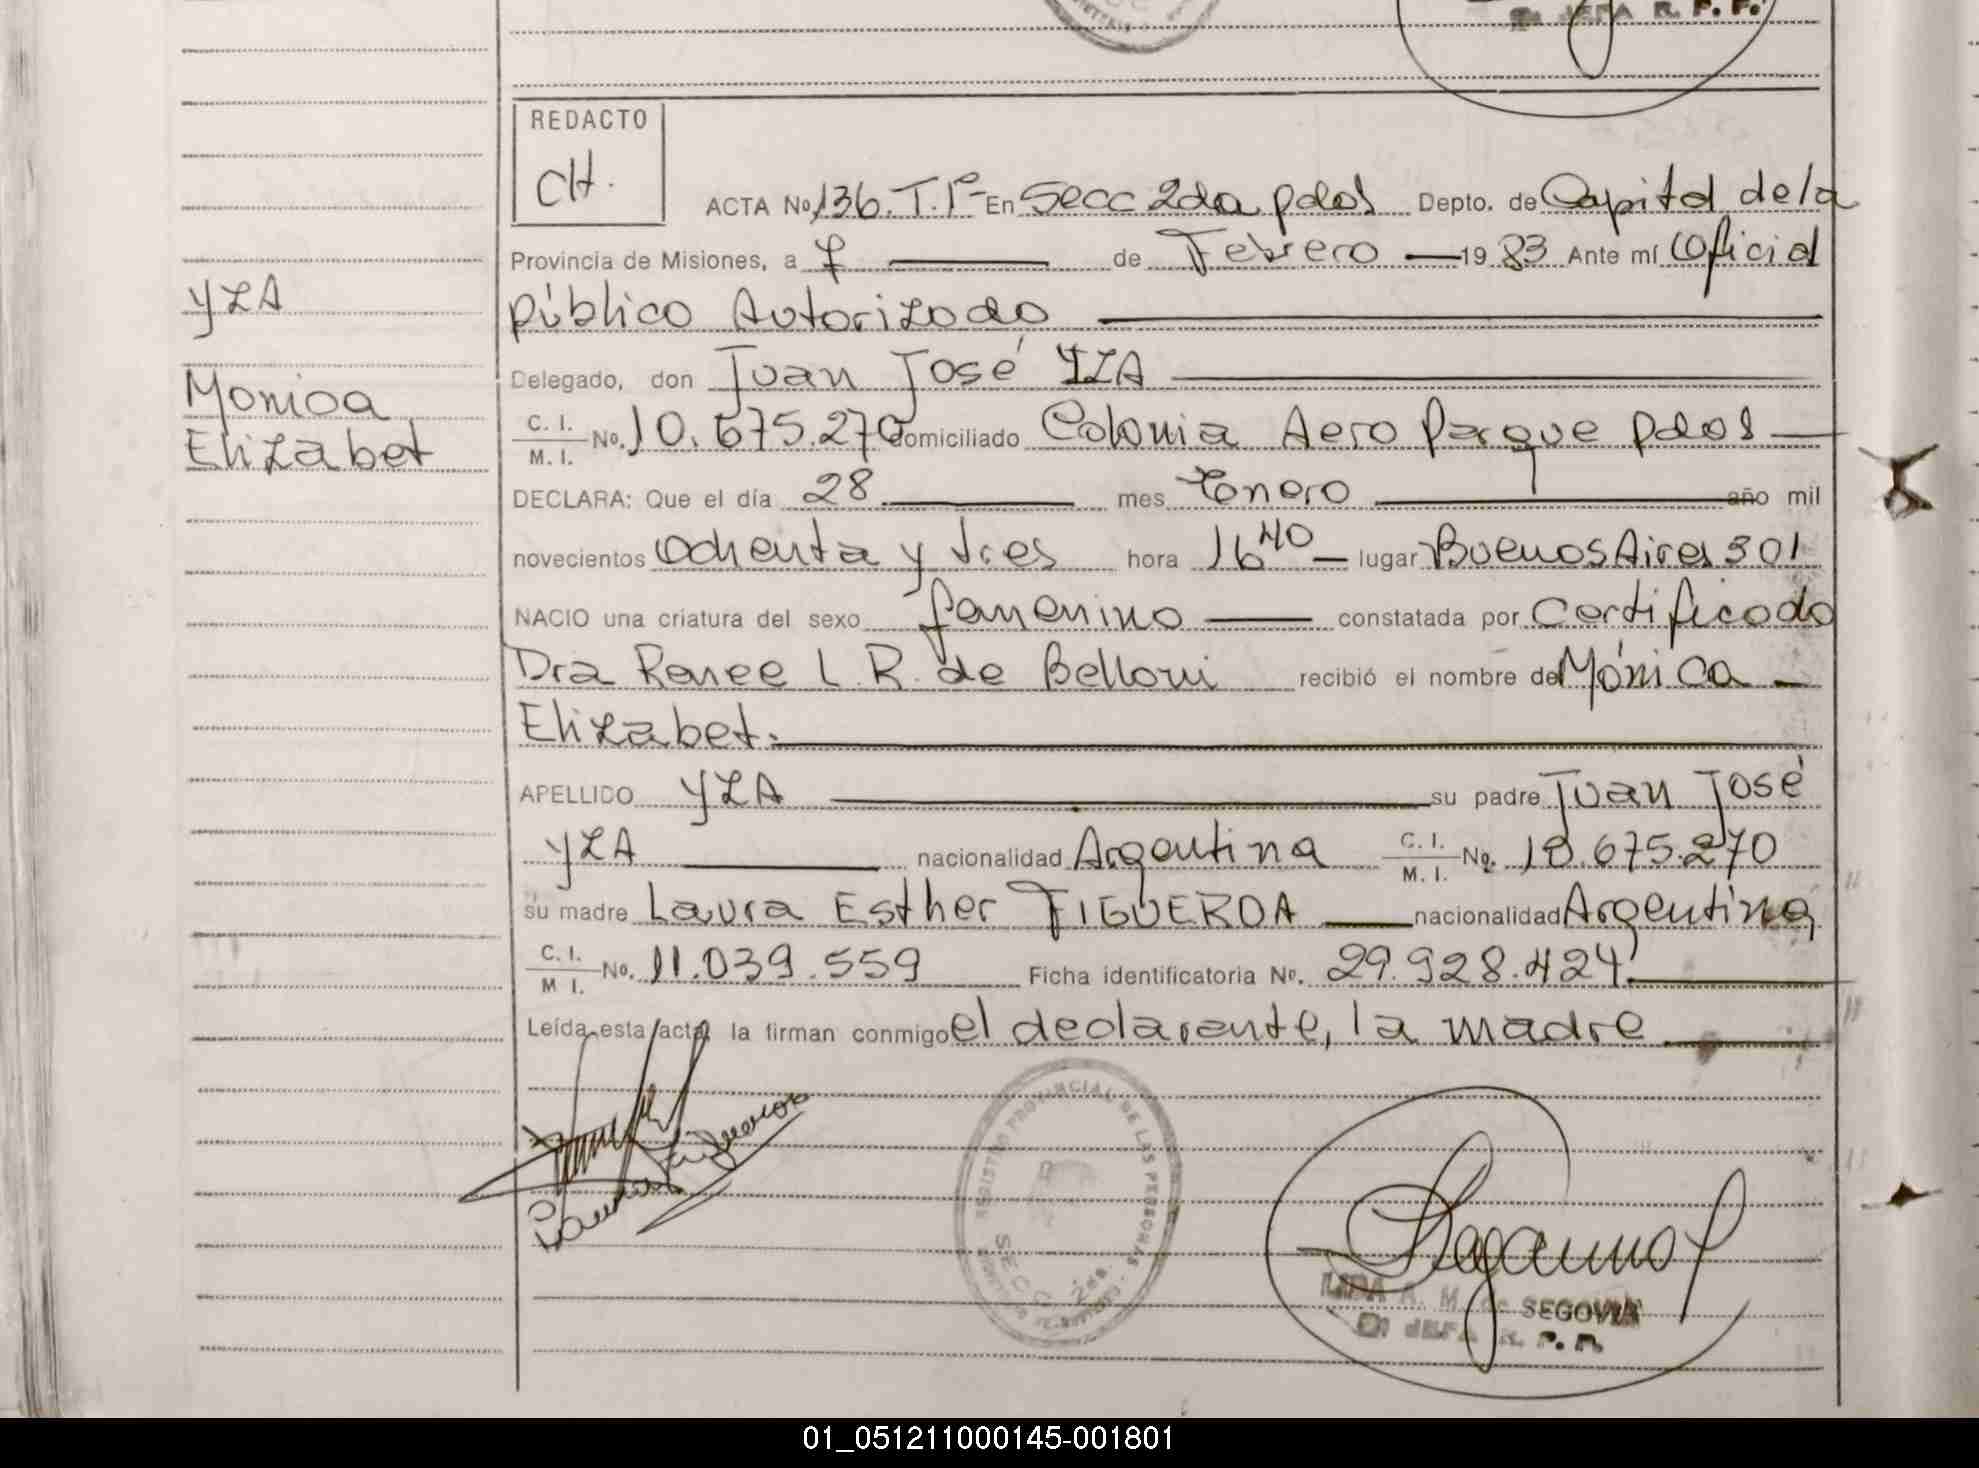 JEFA R. P. P.
REDACTO
CH.
ACTA Nº 136. T.1º En Secc 2da pdas Depto. de Capital de la
Provincia de Misiones, a 7 de Febrero 1983 Ante mí Oficial
público Autorizado
YZA
Delegado, don Juan José YZA
Monica
C. I. M. I. No. 10.675.270 domiciliado Colonia Aero Parque pdas
Elizabet
DECLARA: Que el día 28 mes Enero año mil
novecientos ochenta y tres hora 16 40 lugar Buenos Aires 301
NACIO una criatura del sexo femenino constatada por Certificado
Dra Renee L. R. de Belloni recibió el nombre de Mónica
Elizabet.
APELLIDO YZA su padre Juan José
YZA nacionalidad Argentina C. I. M. I. No. 10.675.270
su madre Laura Esther FIGUEROA nacionalidad Argentina
C. I. M I. No. 11.039.559 Ficha identificatoria Nº. 29.928.424
Leída esta acta, la firman conmigo el declarante, la madre
Laura Figueroa
REGISTRO PROVINCIAL DE LAS PERSONAS
SECC. 2da.
LIDA R. M. de SEGOVIA
JEFA R. P. P.
01_051211000145-001801